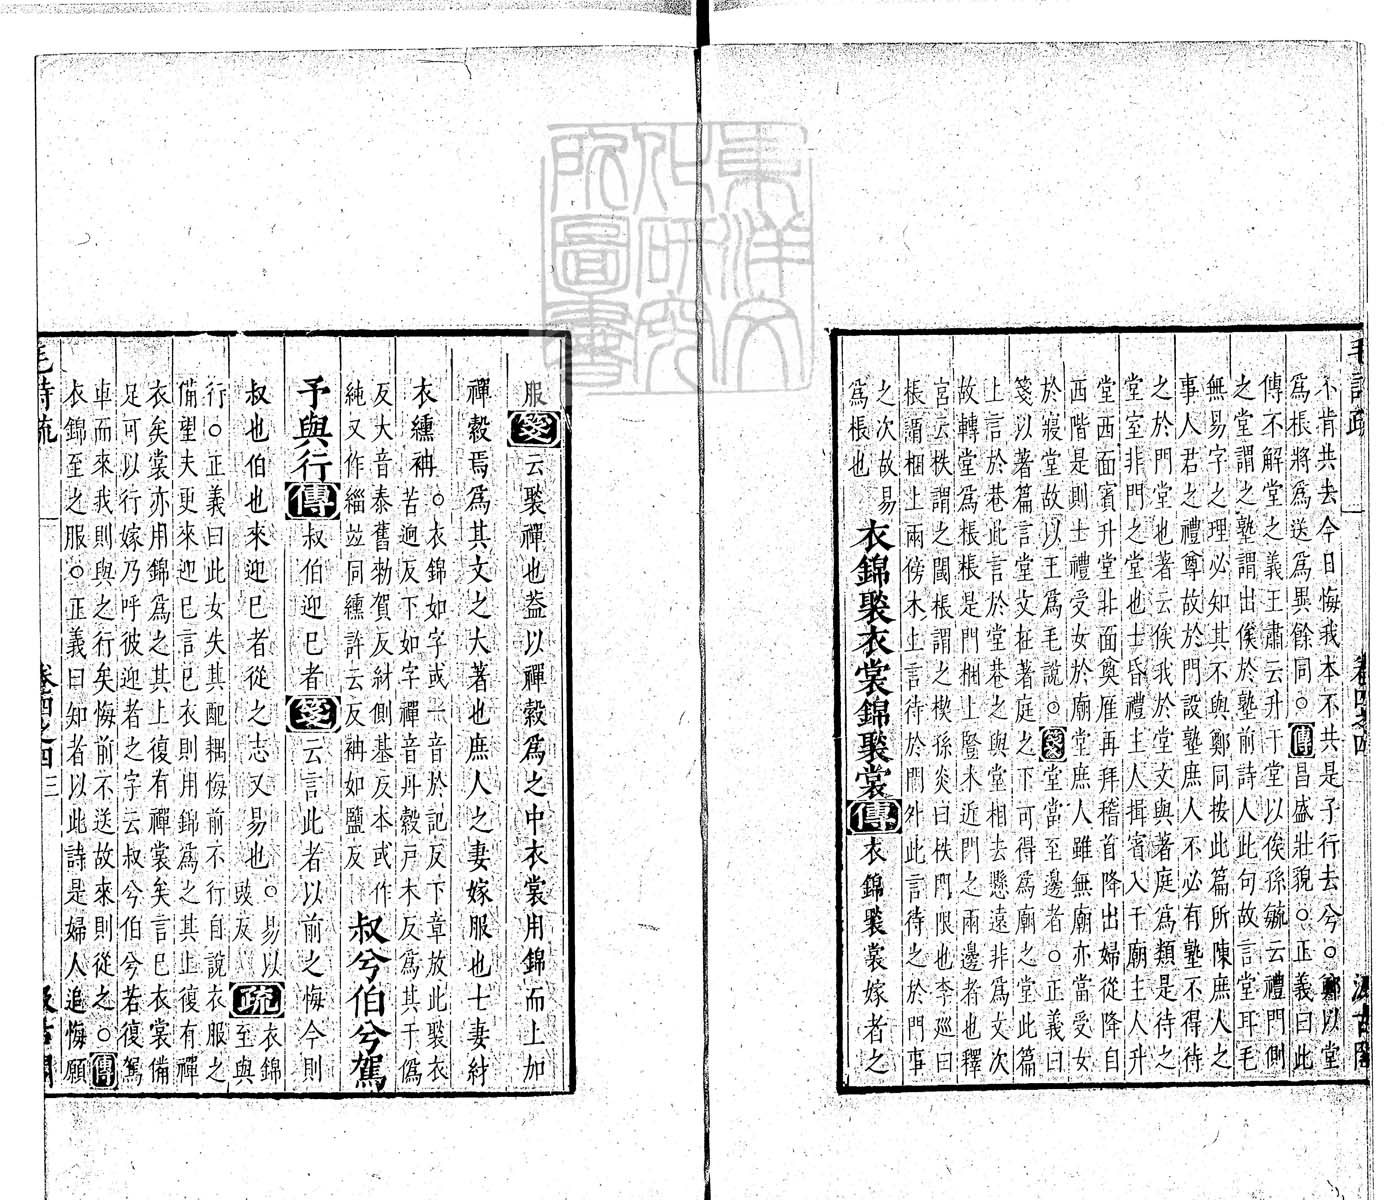 不肯共去今日悔我本不共是子行去兮○鄭以堂
爲棖將爲送爲異餘同○傳昌盛壯貌○正義曰此
傳不解堂之義王肅云升于堂以俟孫毓云禮門側
之堂謂之塾謂出俟於塾前詩人此句故言堂耳毛
無易字之理必知其不與鄭同按此篇所陳庶人之
事人君之禮尊故於門設塾庶人不必有塾不得待
之於門堂也著云俟我於堂文與著庭爲類是待之
堂室非門之堂也士昏禮主人揖賓入于廟主人升
堂西面賓升堂北面奠雁再拜稽首降出婦從降自
西階是則士禮受女於廟堂庶人雖無廟亦當受女
於寢堂故以王爲毛說○箋堂當至邊者○正義曰
箋以著篇言堂文在著庭之下可得爲廟之堂此篇
上言於巷此言於堂巷之與堂相去懸遠非爲文次
故轉堂爲棖棖是門梱上豎木近門之兩邊者也釋
宮云柣謂之閾棖謂之楔孫炎曰柣門限也李巡曰
棖謂梱上兩傍木上言待於門外此言待之於門事
之次故易
爲棖也
衣錦褧衣裳錦褧裳傳衣錦褧裳嫁者之
服箋云褧襌也葢以襌縠爲之中衣裳用錦而上加
襌縠焉爲其文之大著也庶人之妻嫁服也士妻紂
衣纁袡
○衣錦如字或一音於記反下章放此褧衣
苦迥反下如字襌音丹縠戸木反爲其于僞
反大音泰舊勑賀反紂側基反本或作
純又作緇竝同纁許云反袡如鹽反
叔兮伯兮駕
予與行傳叔伯迎己者箋云言此者以前之悔今則
叔也伯也來迎己者從之志又易也
○易以
豉反
疏
衣錦
至與
行○正義曰此女失其配耦悔前不行自說衣服之
備望夫更來迎已言已衣則用錦爲之其上復有襌
衣矣裳亦用錦爲之其上復有襌裳矣言已衣裳備
足可以行嫁乃呼彼迎者之字云叔兮伯兮若復駕
車而來我則與之行矣悔前不送故來則從之○傳
衣錦至之服○正義曰知者以此詩是婦人追悔願
毛詩疏
卷四之四
三
汲古閣
東洋文
化研究
所圖書